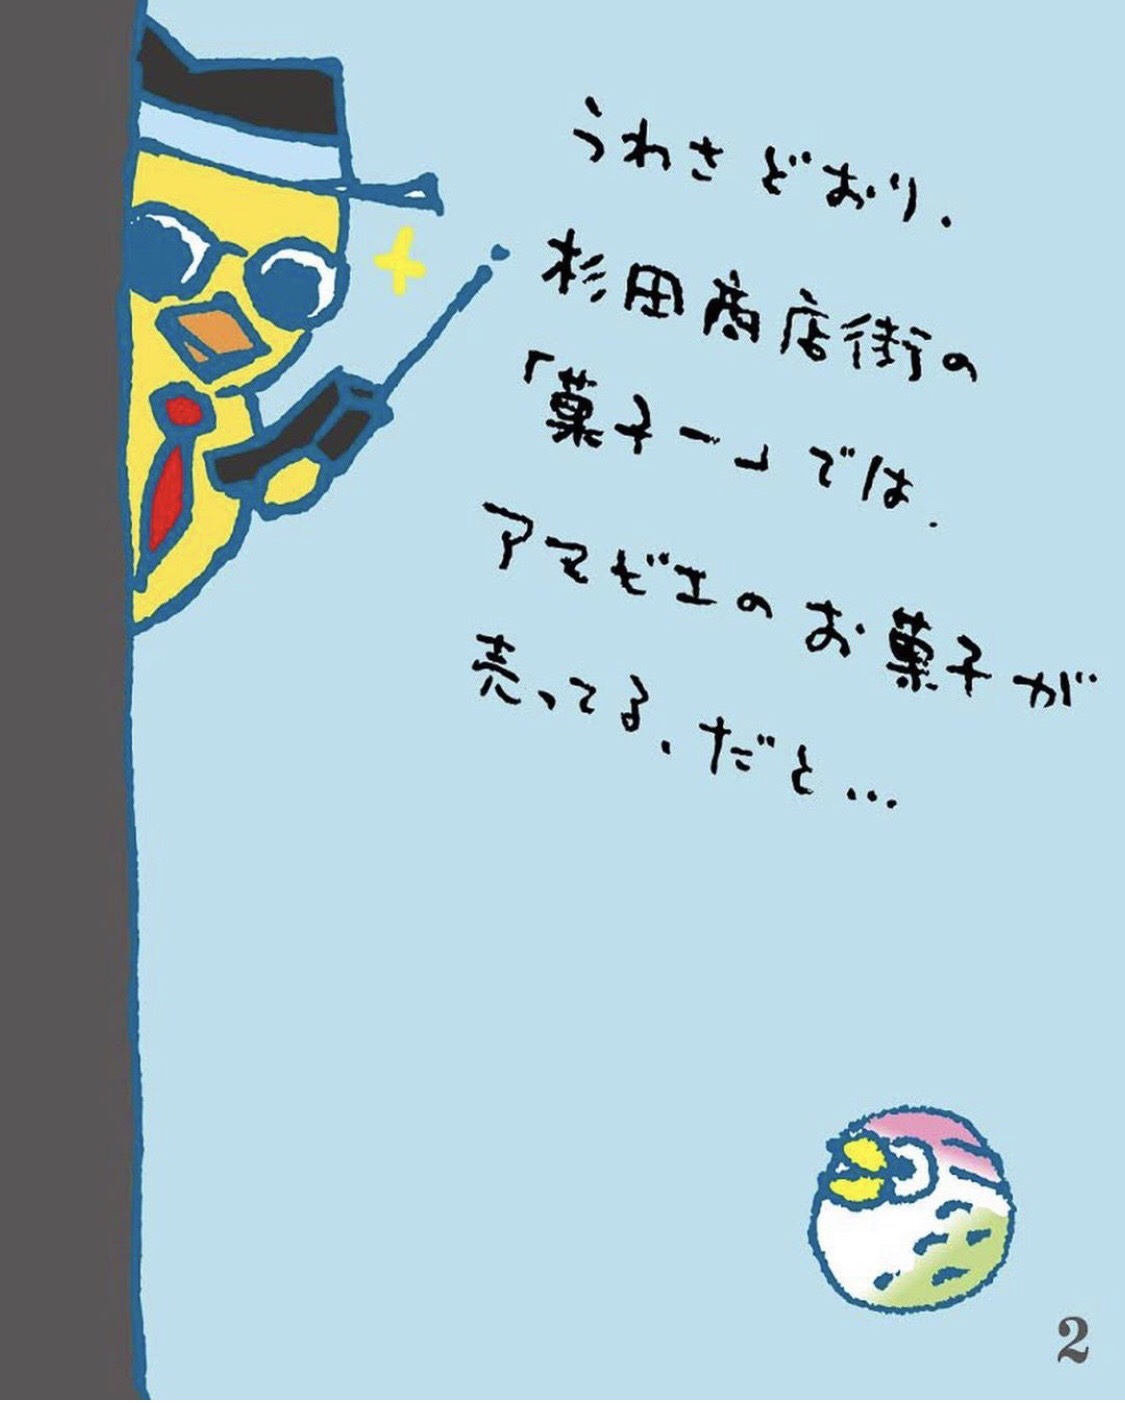 うわさどおり、
杉田商店街の
「菓子一」では、
アマビエのお菓子が
売ってる、だと…
2